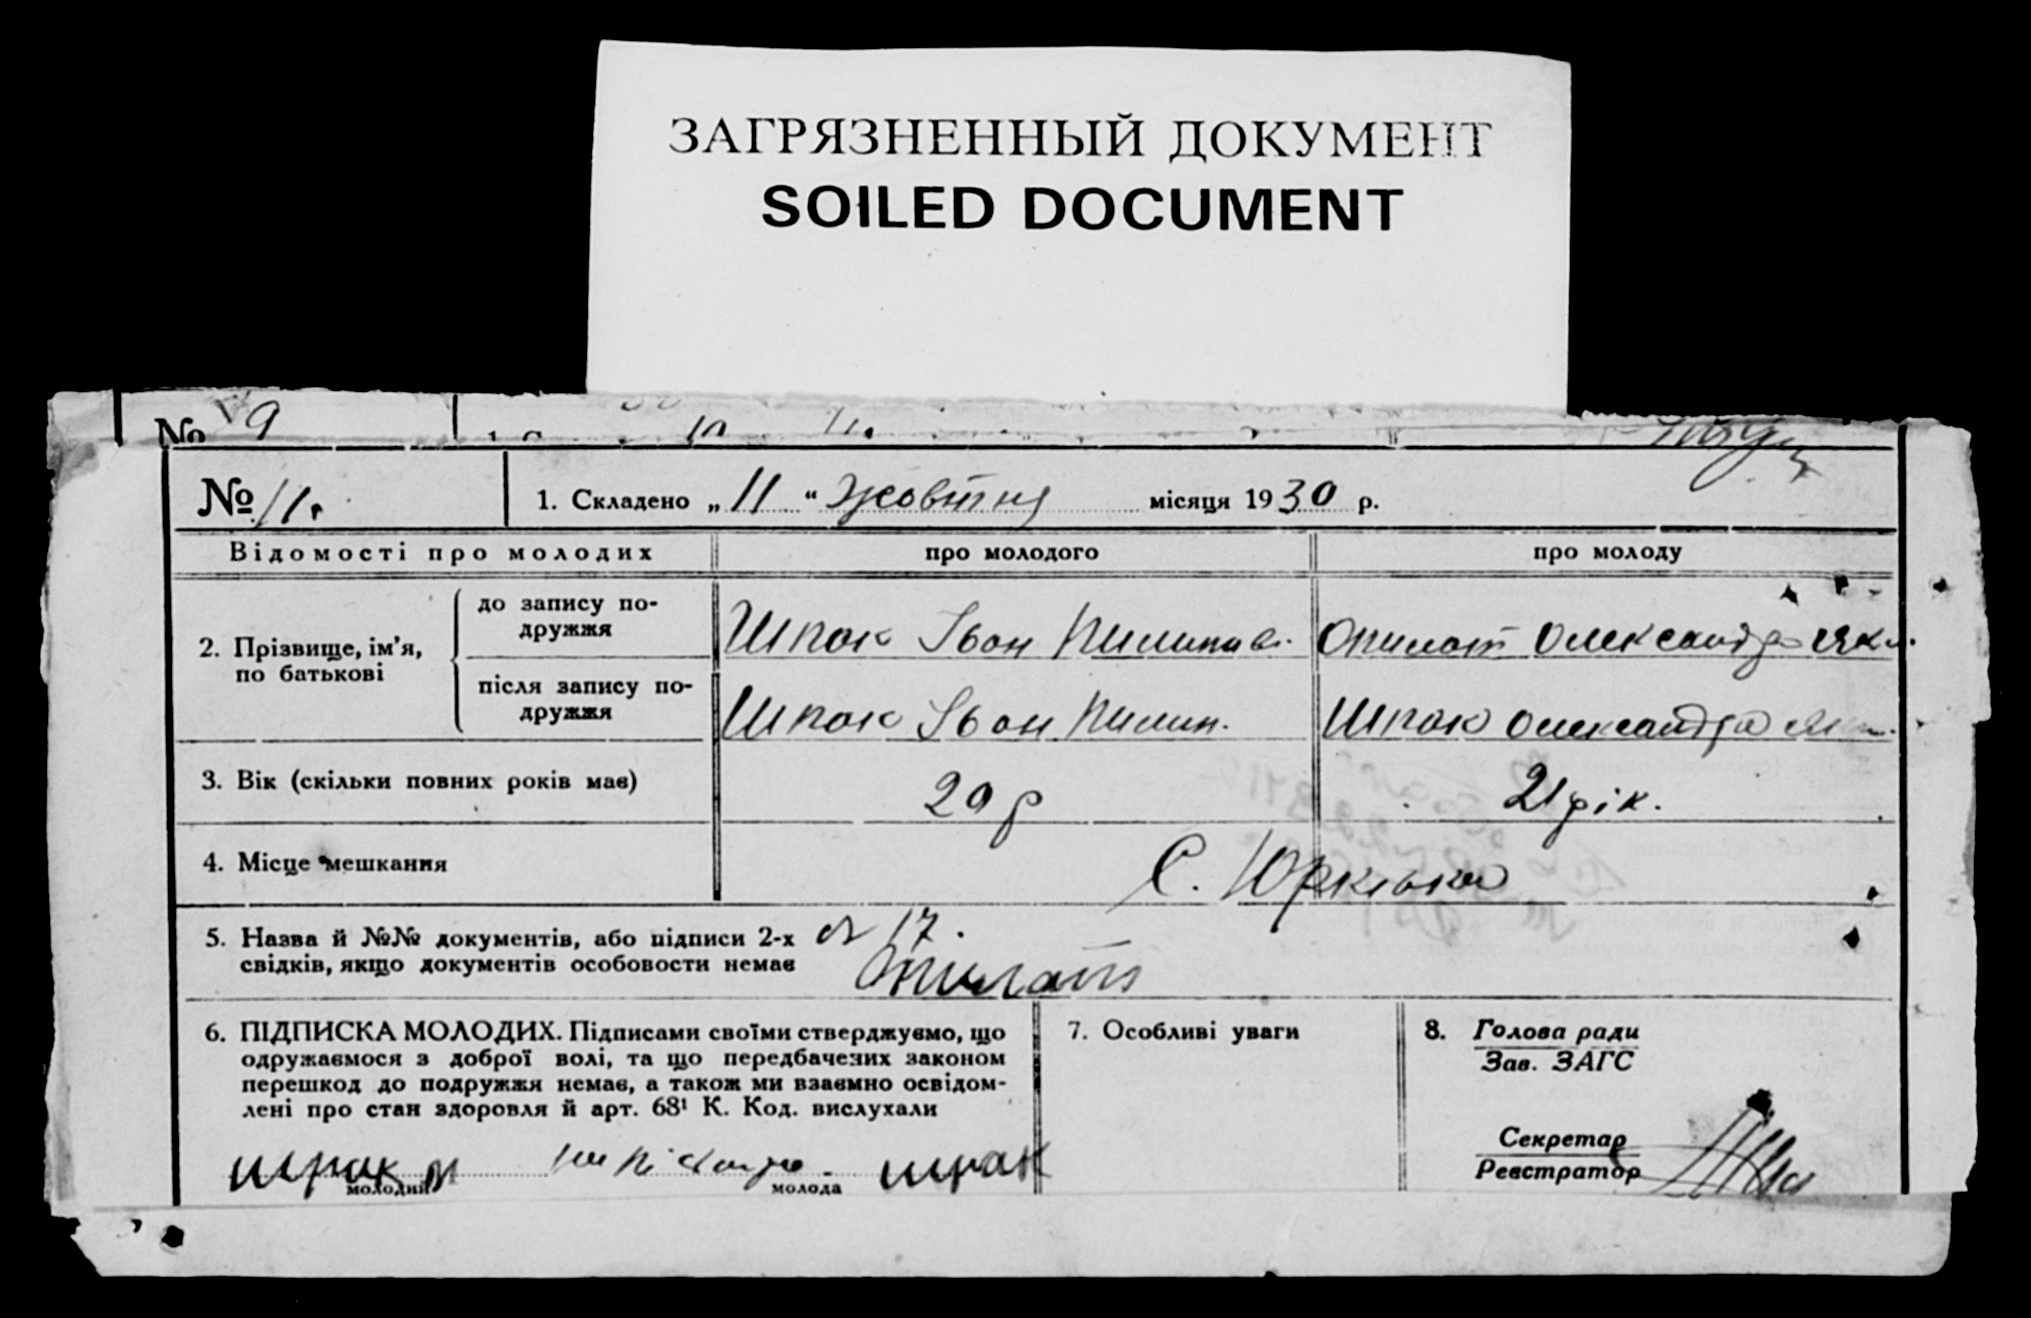 ЗАГРЯЗНЕННЫЙ ДОКУМЕНТ
SOILED DOCUMENT
№ 9
№ 11.
1. Складено „ 11 “ жовтня місяця 1930 р.
Відомості про молодих
про молодого
про молоду
2. Прізвище, ім’я, по батькові
до запису по-
дружжя
Шпак Іван Пилипов.
Опилат Олександра Як.
після запису по-
дружжя
Шпак Іван Пилип.
Шпак Олександра
3. Вік (скільки повних років має)
29 р
21 рік.
4. Місце мешкання
С. Юрківка
5. Назва й №№ документів, або підписи 2-х
свідків, якщо документів особовости немає
17.
Опилат
6. ПІДПИСКА МОЛОДИХ. Підписами своїми стверджуємо, що
одружаємося з доброї волі, та що передбачених законом
перешкод до подружжя немає, а також ми взаємно освідом-
лені про стан здоровля й арт. 68¹ К. Код. вислухали
шпак
шпак
молодий
молода
7. Особливі уваги
8. Голова ради
Зав. ЗАГС
Секретар
Реєстратор